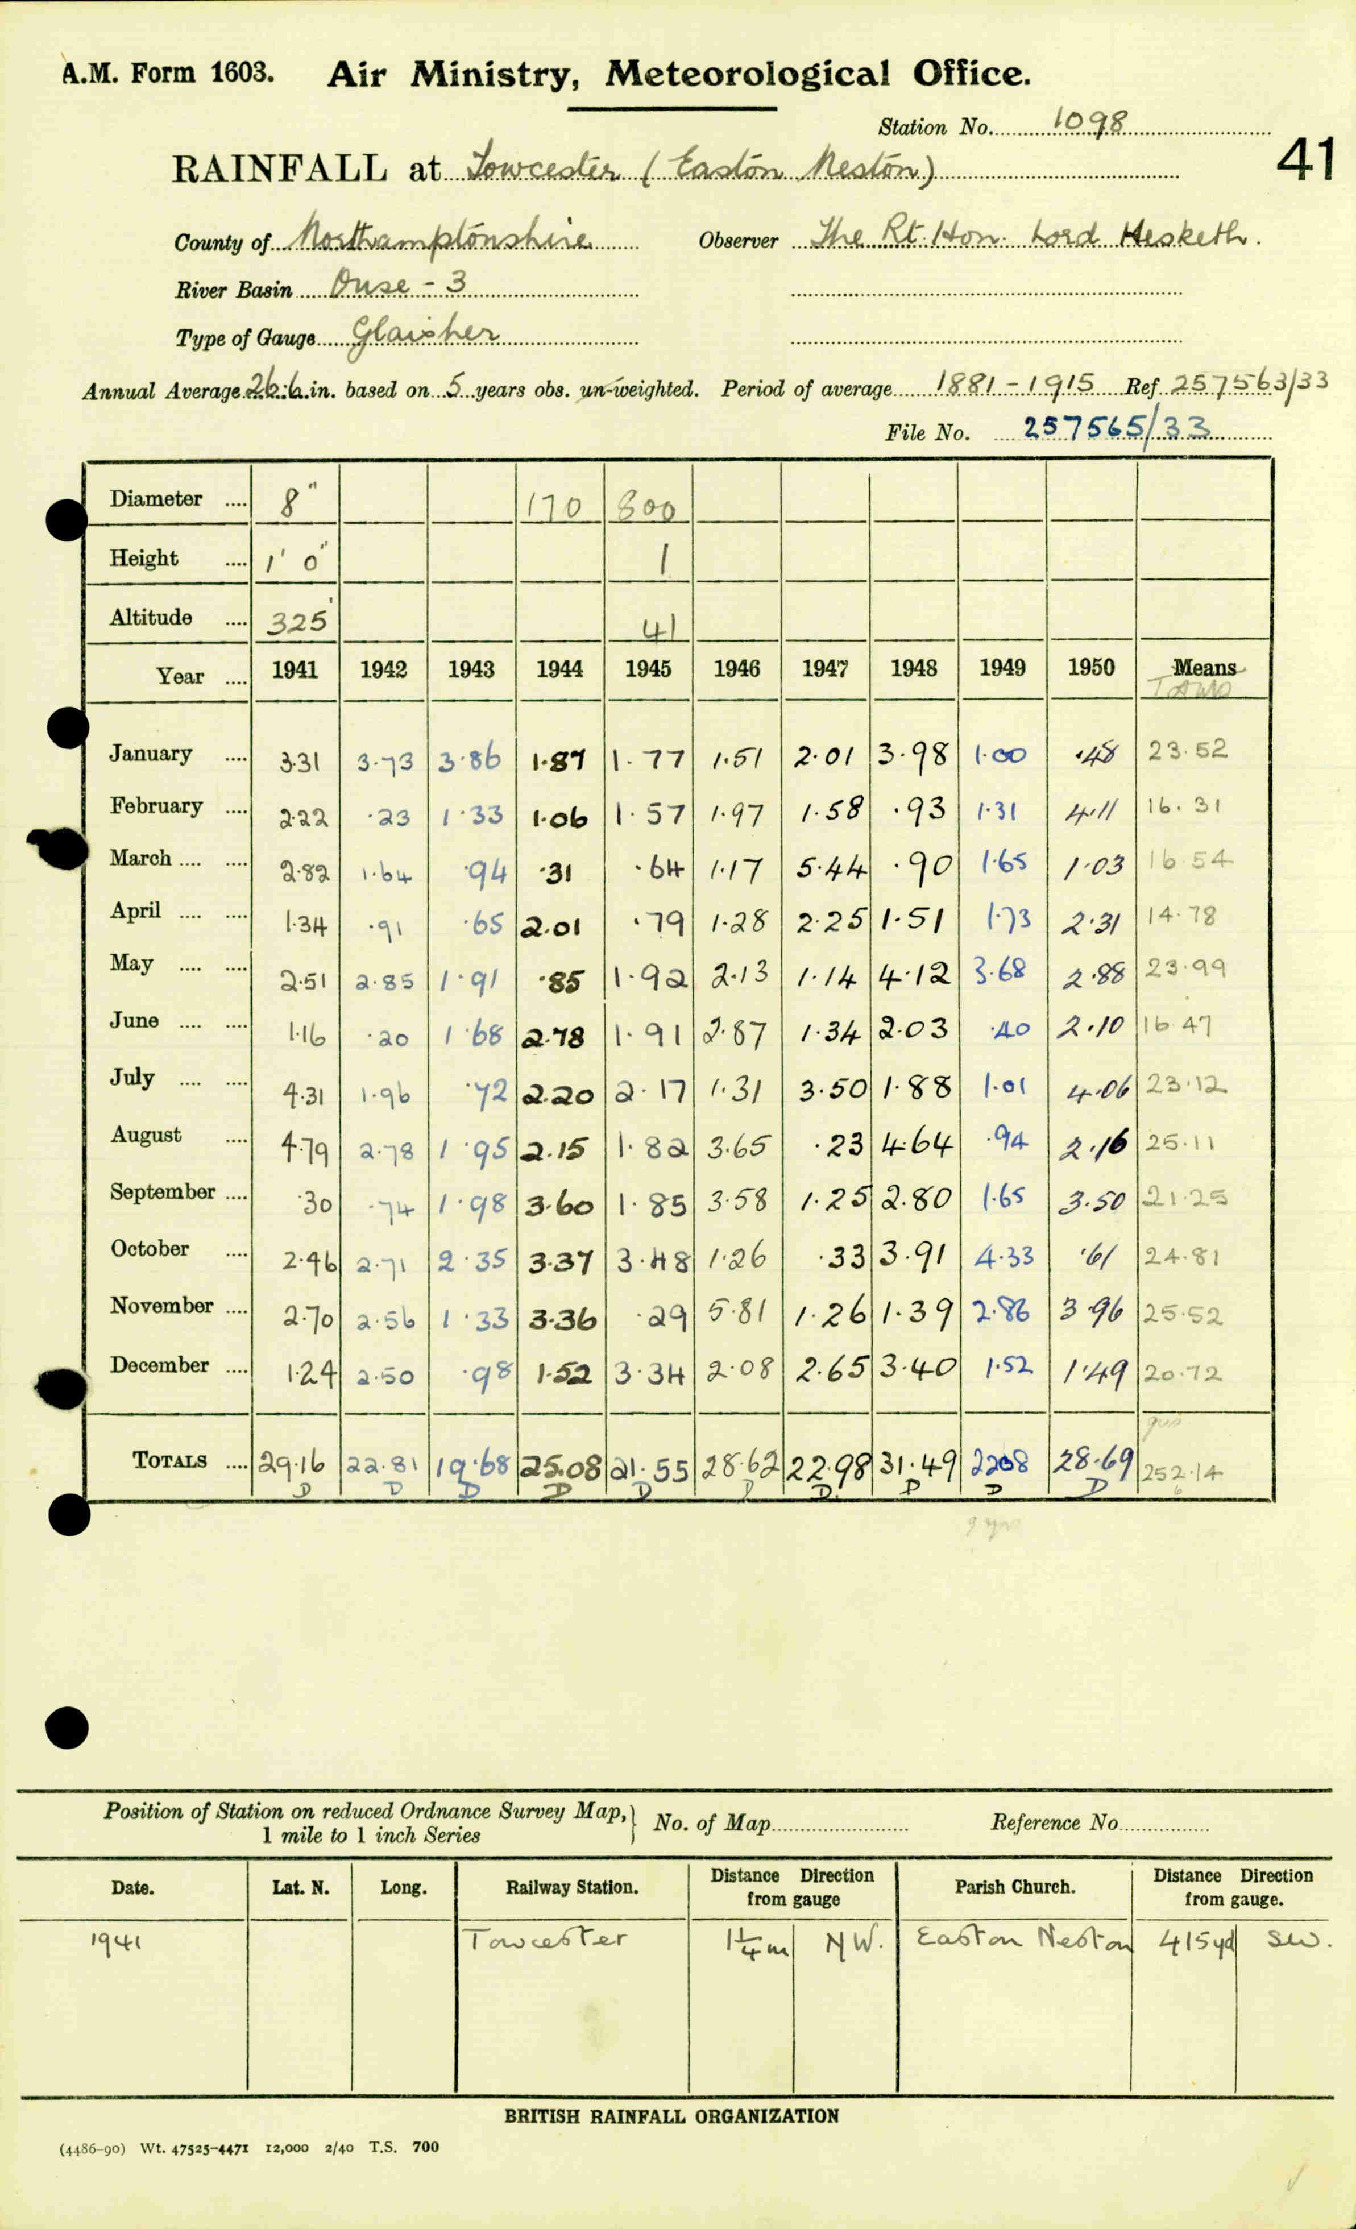 A.M. Form 1603. Air Ministry, Meteorological Office.
Station No. 1098
41
RAINFALL at Towcester (Easton Neston)
County of Northamptonshire Observer The Rt. Hon. Lord Hesketh.
River Basin Ouse - 3
Type of Gauge Glaisher
Annual Average 26.6 in. based on 5 years obs. un-weighted. Period of average 1881-1915 Ref 257563/33
File No. 257565/33
Diameter .... 8" 170 800
Height .... 1' 0" 1
Altitude .... 325' 41
Year .... 1941 1942 1943 1944 1945 1946 1947 1948 1949 1950 Means
Totals
January .... 3.31 3.73 3.86 1.87 1.77 1.51 2.01 3.98 1.00 .48 23.52
February .... 2.22 .23 1.33 1.06 1.57 1.97 1.58 .93 1.31 4.11 16.31
March .... .... 2.82 1.64 .94 .31 .64 1.17 5.44 .90 1.65 1.03 16.54
April .... .... 1.34 .91 .65 2.01 .79 1.28 2.25 1.51 1.73 2.31 14.78
May .... .... 2.51 2.85 1.91 .85 1.92 2.13 1.14 4.12 3.68 2.88 23.99
June .... .... 1.16 .20 1.68 2.78 1.91 2.87 1.34 2.03 .40 2.10 16.47
July .... .... 4.31 1.96 .72 2.20 2.17 1.31 3.50 1.88 1.01 4.06 23.12
August .... 4.79 2.78 1.95 2.15 1.82 3.65 .23 4.64 .94 2.16 25.11
September .... .30 .74 1.98 3.60 1.85 3.58 1.25 2.80 1.65 3.50 21.25
October .... 2.46 2.71 2.35 3.37 3.48 1.26 .33 3.91 4.33 .61 24.81
November .... 2.70 2.56 1.33 3.36 .29 5.81 1.26 1.39 2.86 3.96 25.52
December .... 1.24 2.50 .98 1.52 3.34 2.08 2.65 3.40 1.52 1.49 20.72
TOTALS .... 29.16 22.81 19.68 25.08 21.55 28.62 22.98 31.49 22.08 28.69 252.14
D D D D D D D. D D D 6
Position of Station on reduced Ordnance Survey Map, 1 mile to 1 inch Series } No. of Map Reference No.
Date. Lat. N. Long. Railway Station. Distance Direction from gauge Parish Church. Distance Direction from gauge.
1941 Towcester 1 1/4 m NW. Easton Neston 415 yd SW.
BRITISH RAINFALL ORGANIZATION
(4486-90) Wt. 47525-4471 12,000 2/40 T.S. 700